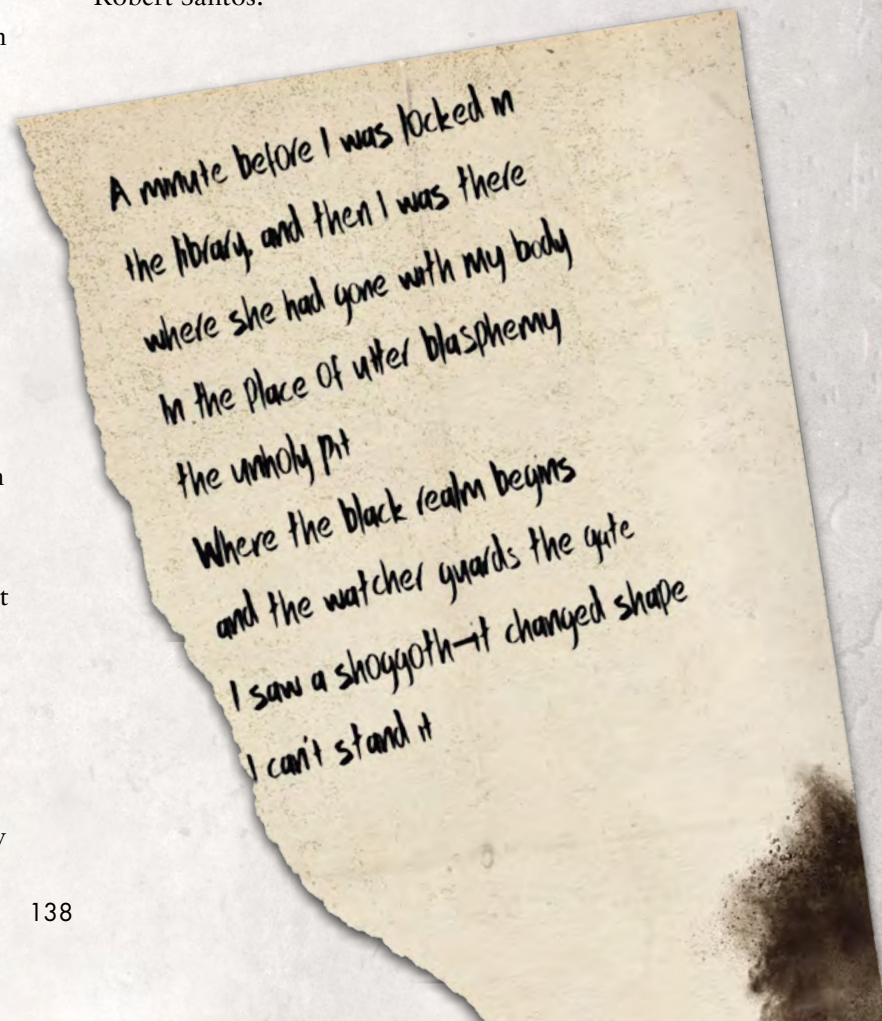 Robert Santos.
A minute before I was locked in
the library, and then I was there
where she had gone with my body
In the Place Of utter blasphemy
the unholy pit
Where the black realm begins
and the watcher guards the gate
I saw a shoggoth—it changed shape
I can't stand it
138